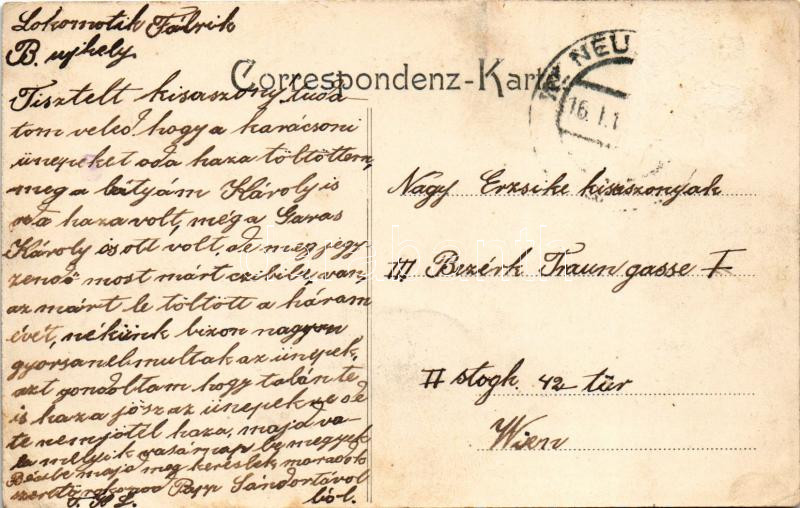 Lokomotik Fabrik
B. ujhely
Correspondenz-Karte
NEU
16. I. 1
Tisztelt kisaszony tuda
tom veled hogy a karácsoni
ünepeket oda haza töltöttem,
meg a bátyám Károly is
oda haza volt, még a Garas
Károly is ott volt, de megjegy-
zendő most márt czibile, van,
az márt le töltött a háram
évét, nékünk bizon nagyon
gyorsan elmultak az ünepek,
azt gondoltam hogy talán te
is haza jösz az ünepekre de
te nem jötél haza, majd va
la melyik vasárnap be megyek
Bécsbe majd meg kereslek, maradok
szerető rokonod Papp Sándortávol
ból.
Nagy Erzsike kisaszonynak
III Bezérk Traun gasse I
II stogh. 42 tür
Wien